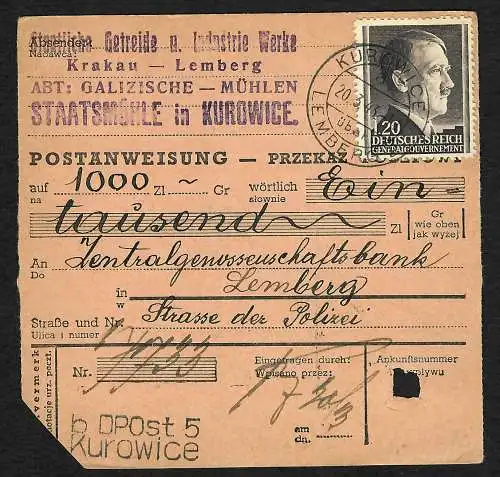 Absender
Nadawca:
Staatliche Getreide u. Industrie Werke
Krakau — Lemberg
ABT: GALIZISCHE — MÜHLEN
STAATSMÜHLE in KUROWICE.
KUROWICE
LEMBERG
1.20
DEUTSCHES REICH
GENERALGOUVERNEMENT
POSTANWEISUNG — PRZEKAZ
auf 1000 Zl — Gr wörtlich Ein-
na słownie
tausend Zl Gr
wie oben
jak wyżej
An Zentralgenossenschaftsbank
Do
in Lemberg
w
Strasse der Polizei
Straße und Nr.
Ulica i numer
Nr.
Eingetragen durch:
Wpisano przez:
Ankunftsnummer
am
da.
vermerk
otacje urz. poczt.
b DPost 5
Kurowice